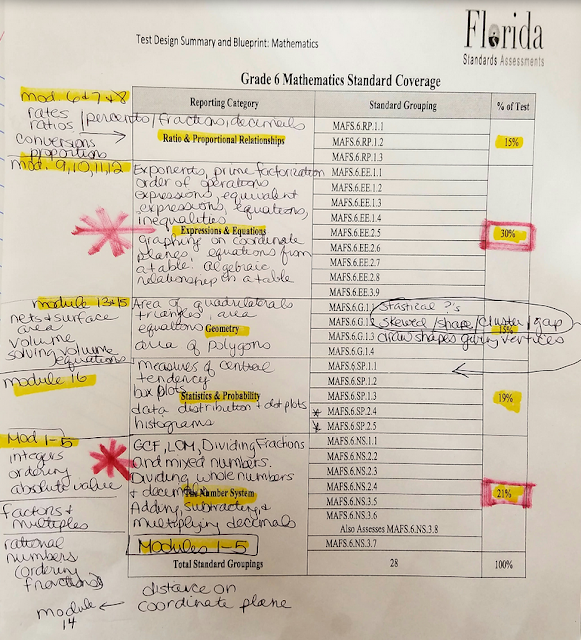 Test Design Summary and Blueprint: Mathematics
Florida
Standards Assessments
Grade 6 Mathematics Standard Coverage
Reporting Category
Standard Grouping
% of Test
mod 6 & 7 & 8
rates
ratios / percents / fractions, decimals
conversions
proportions
Ratio & Proportional Relationships
MAFS.6.RP.1.1
MAFS.6.RP.1.2
MAFS.6.RP.1.3
15%
mod. 9, 10, 11, 12
Exponents, prime factorization
order of operations
expressions, equivalent
expressions, equations,
inequalities
Expressions & Equations
graphing on coordinate
planes, equations from
a table: algebraic
relationship in a table
MAFS.6.EE.1.1
MAFS.6.EE.1.2
MAFS.6.EE.1.3
MAFS.6.EE.1.4
MAFS.6.EE.2.5
MAFS.6.EE.2.6
MAFS.6.EE.2.7
MAFS.6.EE.2.8
MAFS.6.EE.3.9
30%
module 13 & 15
nets & surface
area
volume
solving volume
equations
Area of quadrilaterals
triangles, area
equations
Geometry
area of polygons
MAFS.6.G.1.1
MAFS.6.G.1.2
MAFS.6.G.1.3
MAFS.6.G.1.4
Stastical ?'s
skewed / shape / cluster / gap
draw shapes given vertices
15%
module 16
measures of central
tendency
box plots
Statistics & Probability
data distribution & dot plots
histograms
MAFS.6.SP.1.1
MAFS.6.SP.1.2
MAFS.6.SP.1.3
* MAFS.6.SP.2.4
* MAFS.6.SP.2.5
19%
Mod 1-5
integers
ordering
absolute value
factors &
multiples
rational
numbers
(ordering
fractions)
GCF, LCM, Dividing Fractions
and mixed numbers.
Dividing whole numbers
& decimals
The Number System
Adding, subtracting, &
multiplying decimals
Modules 1-5
MAFS.6.NS.1.1
MAFS.6.NS.2.2
MAFS.6.NS.2.3
MAFS.6.NS.2.4
MAFS.6.NS.3.5
MAFS.6.NS.3.6
Also Assesses MAFS.6.NS.3.8
MAFS.6.NS.3.7
21%
Total Standard Groupings
28
100%
module
14
distance on
coordinate plane